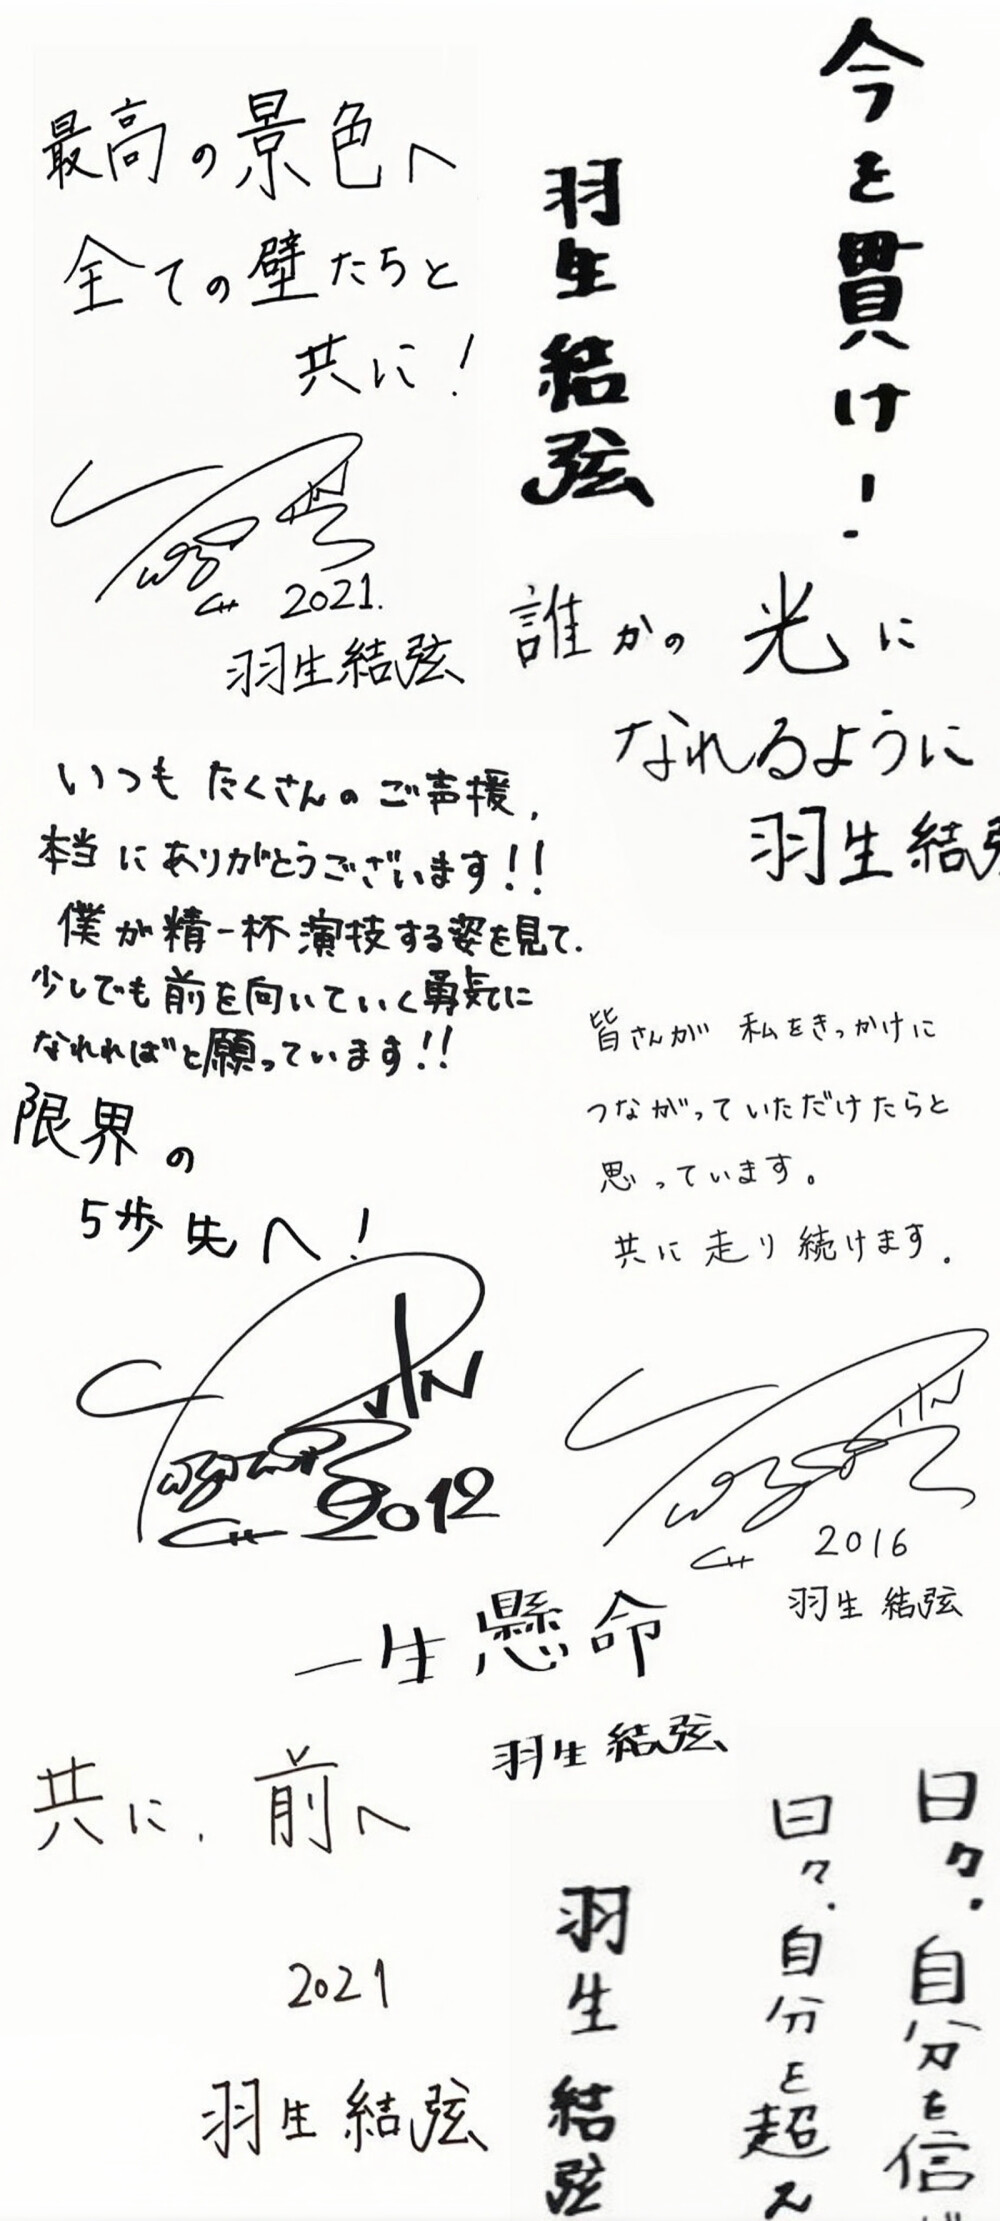 最高の景色へ
全ての壁たちと
共に!
2021.
羽生結弦
今を貫け!
羽生結弦
誰かの光に
なれるように
羽生結弦
いつもたくさんのご声援,
本当にありがとうございます!!
僕が精一杯演技する姿を見て、
少しでも前を向いていく勇気に
なれればと願っています!!
限界の
5歩先へ!
2012
皆さんが私をきっかけに
つながっていただけたらと
思っています。
共に走り続けます.
2016
羽生結弦
一生懸命
羽生結弦
共に、前へ
2021
羽生結弦
日々、自分を信
日々、自分を超え
羽生結弦